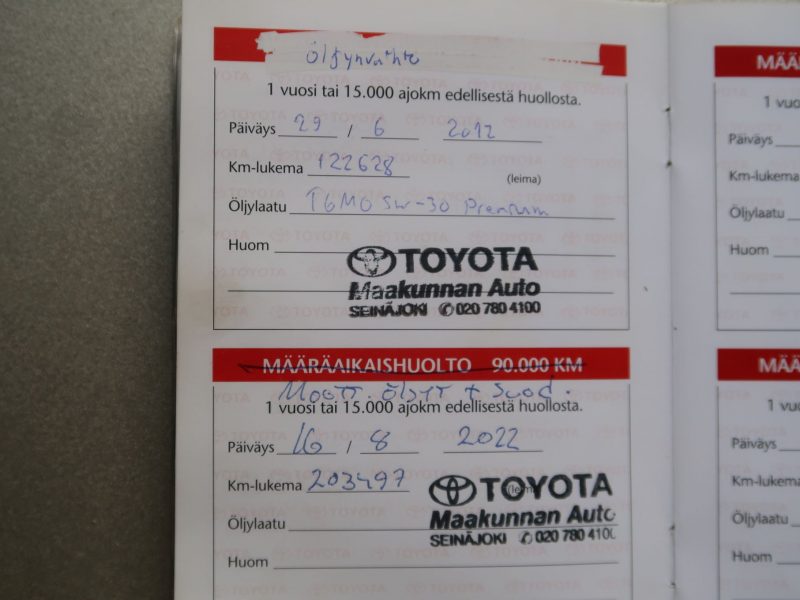 Öljynvaihto
1 vuosi tai 15.000 ajokm edellisestä huollosta.
Päiväys 29 / 6 2012
Km-lukema 122628
(leima)
Öljylaatu TGMO 5w-30 Premium
Huom
TOYOTA
Maakunnan Auto
SEINÄJOKI ✆ 020 780 4100
MÄÄRÄAIKAISHUOLTO 90.000 KM
Moott. öljyt + Suod.
1 vuosi tai 15.000 ajokm edellisestä huollosta.
Päiväys 16 / 8 2022
Km-lukema 203497
TOYOTA
Öljylaatu
Maakunnan Auto
SEINÄJOKI ✆ 020 780 410
Huom
MÄÄ
1 vuo
Päiväys
Km-lukema
Öljylaatu
Huom
MÄÄ
1 vu
Päiväys
Km-lukema
Öljylaatu
Huom